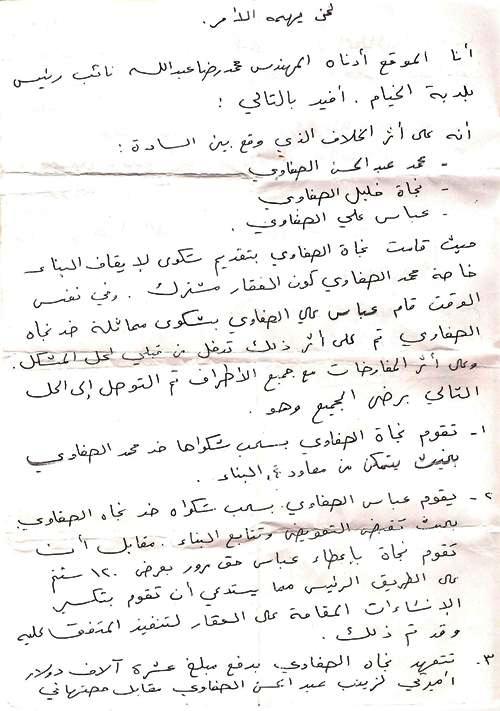 لمن يهمه الأمر.
أنا الموقع أدناه المهندس محمد رضا عبدالله نائب رئيس
بلدية الخيام. أفيد بالتالي:
أنه على أثر الخلاف الذي وقع بين السادة:
- محمد عبد الحسن الصفاوي
- نجاة خليل الصفاوي
- عباس علي الصفاوي.
حيث قامت نجاة الصفاوي بتقديم شكوى لإيقاف البناء
خاصة محمد الصفاوي كون العقار مشترك. وفي نفس
الوقت قام عباس علي الصفاوي بشكوى مماثلة ضد نجاه
الصفاوي تم على أثر ذلك تدخل من قبلي لحل المشكل.
وعلى أثر المفاوضات مع جميع الأطراف تم التوصل إلى الحل
التالي برضى الجميع وهو.
١- تقوم نجاة الصفاوي بسحب شكواها ضد محمد الصفاوي
بحيث يتمكن من معاودة البناء.
٢- يقوم عباس الصفاوي بسحب شكواه ضد نجاه الصفاوي.
بحيث تقبض التعويض وتتابع البناء. مقابل أن
تقوم نجاة بإعطاء عباس حق مرور بعرض ١٢٠ سنتم
على الطريق الرئيسي مما يستدعي أن تقوم بتكسير
الإنشاءات المقامة على العقار لتنفيذ المتفق عليه
وقد تم ذلك.
٣. تتعهد نجاه الصفاوي بدفع مبلغ عشرة آلاف دولار
أميركي لزينب عبد الحسن الصفاوي مقابل حصتها في